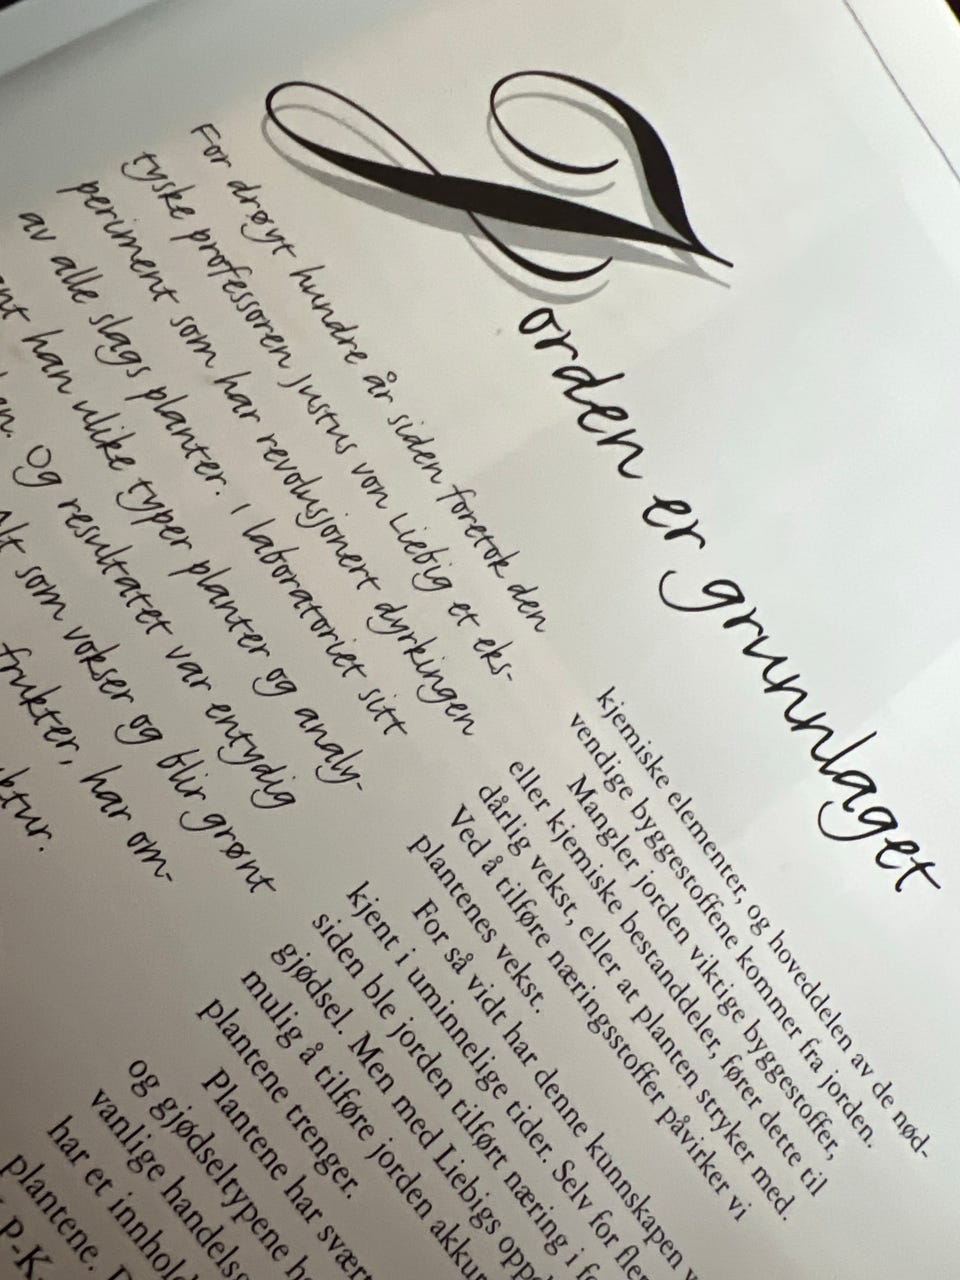 Jorden er grunnlaget
For drøyt hundre år siden foretok den
tyske professoren Justus von Liebig et eks-
periment som har revolusjonert dyrkingen
av alle slags planter. I laboratoriet sitt
han ulike typer planter og analy-
Og resultatet var entydig
som vokser og blir grønt
frukter, har om-
kjemiske elementer, og hoveddelen av de nød-
vendige byggestoffene kommer fra jorden.
Mangler jorden viktige byggestoffer,
eller kjemiske bestanddeler, fører dette til
dårlig vekst, eller at planten stryker med.
Ved å tilføre næringsstoffer påvirker vi
plantenes vekst.
For så vidt har denne kunnskapen
kjent i uminnelige tider. Selv for
siden ble jorden tilført næring i
gjødsel. Men med Liebigs
mulig å tilføre jorden
plantene trenger.
Plantene har
og gjødseltypene
vanlige
har et
plantene.
P-K